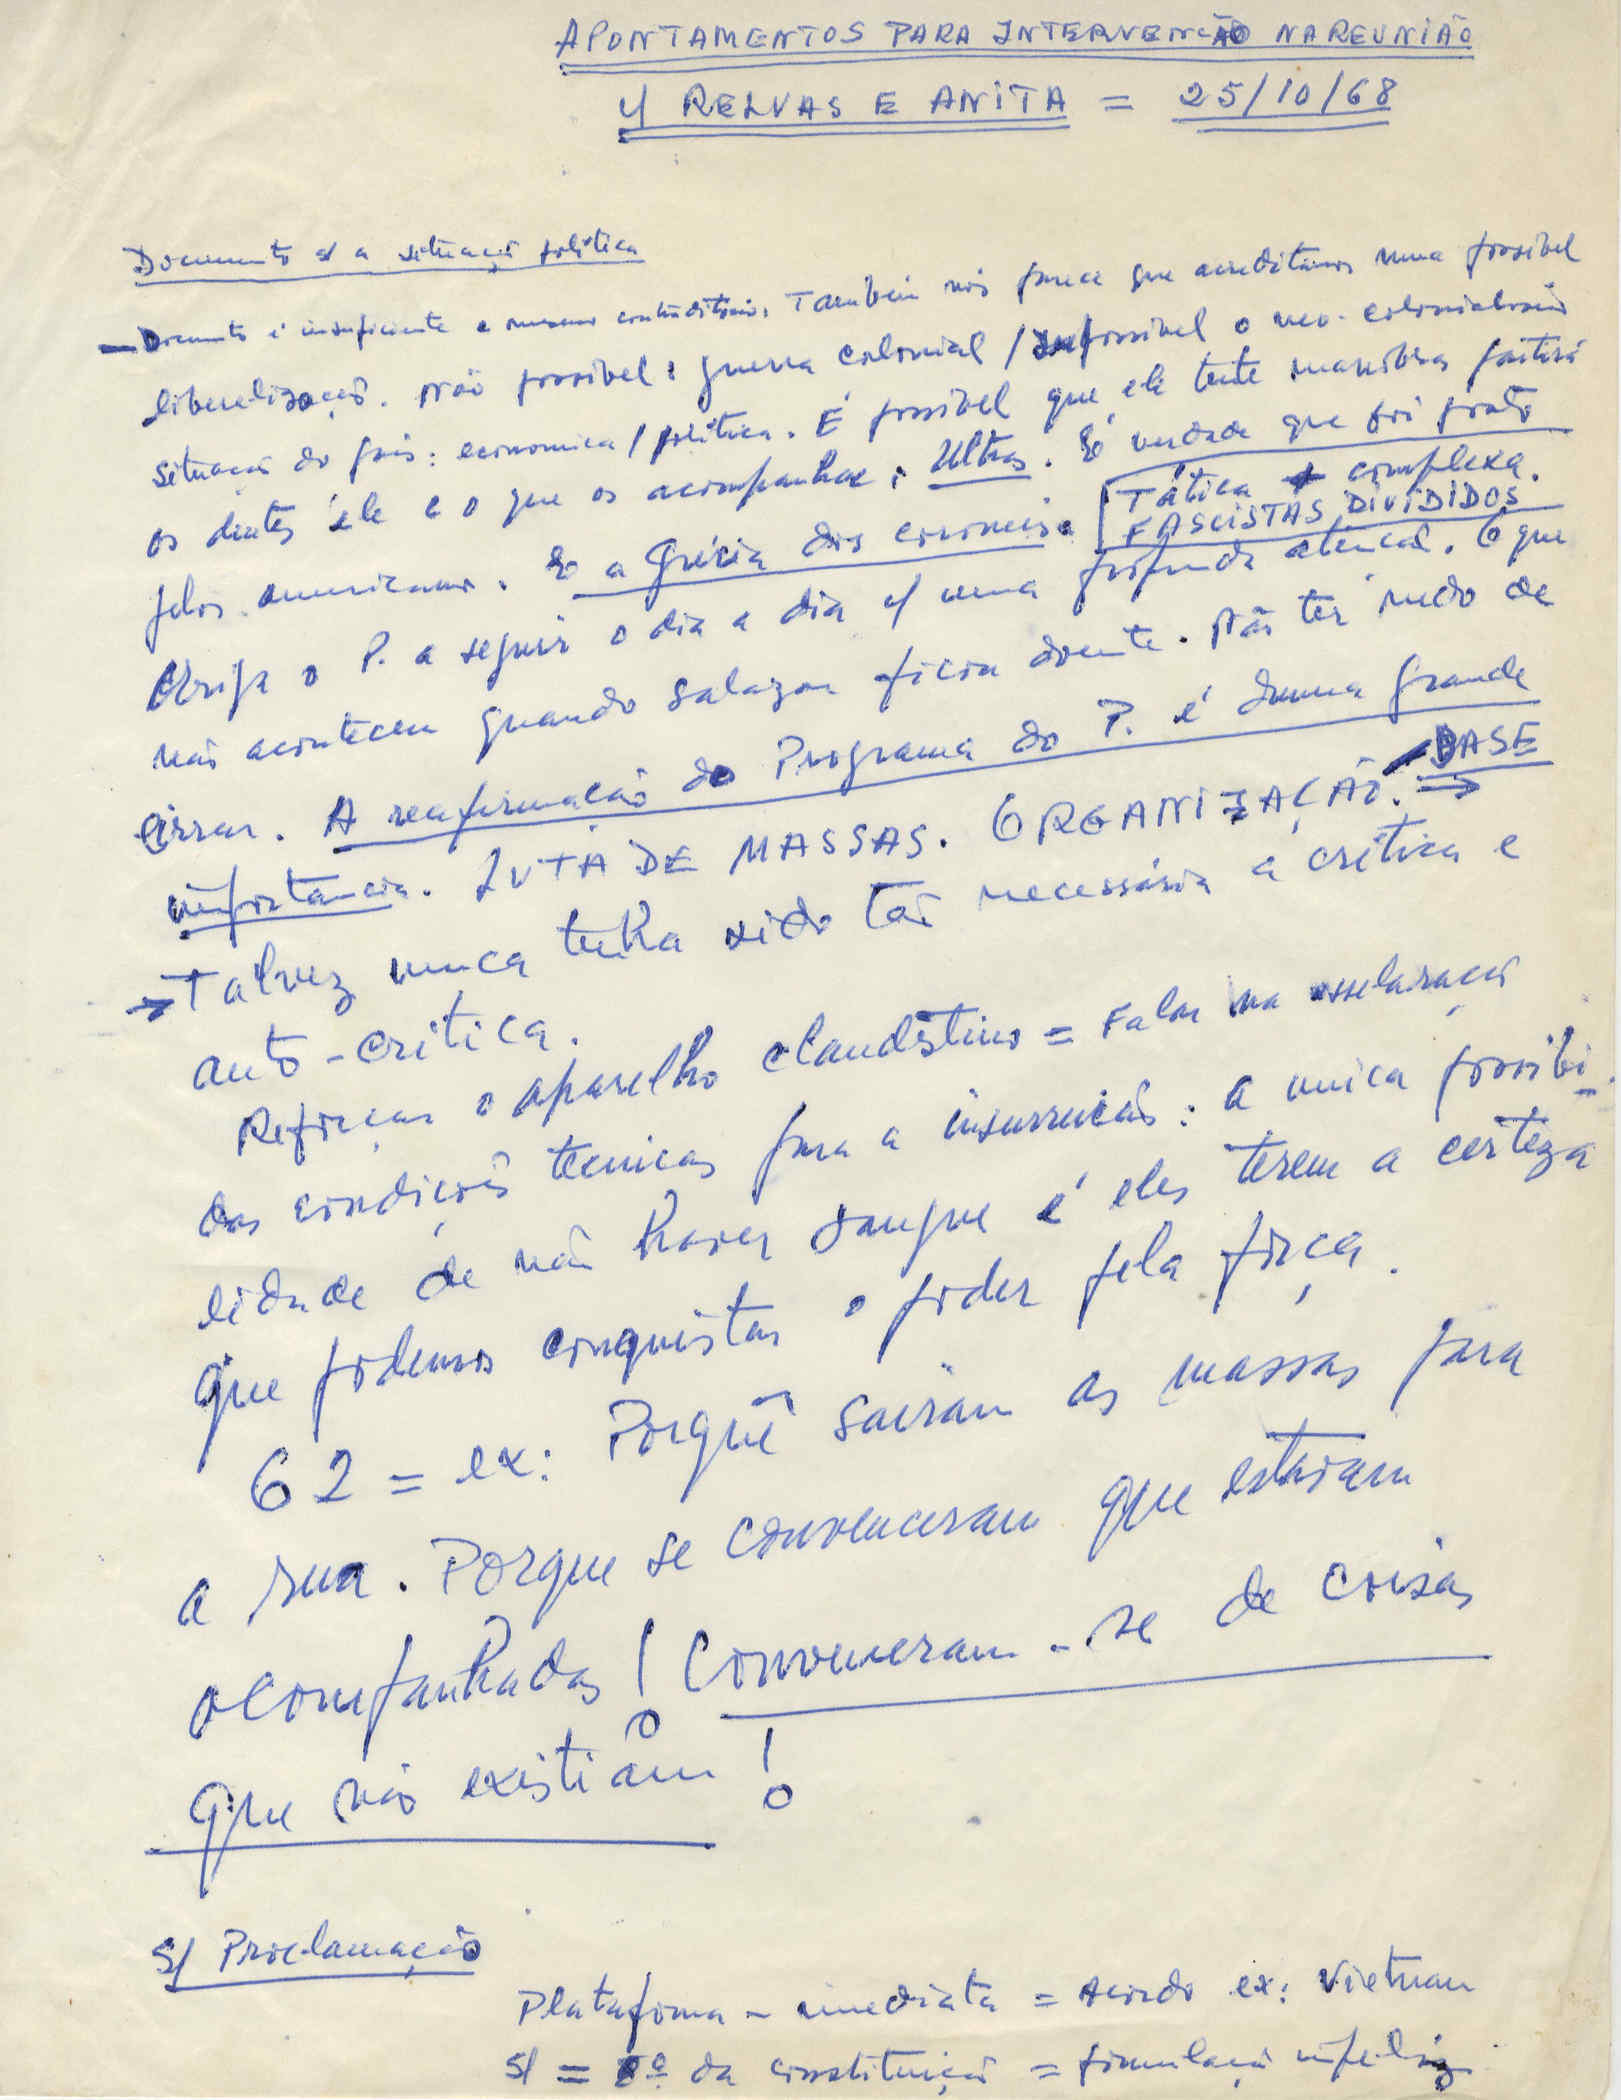 APONTAMENTOS PARA INTERVENÇÃO NA REUNIÃO
C/ RELVAS E ANITA = 25/10/68
Documento s/ a situação política
— Documento é insuficiente e mesmo contraditório. Também nós parece que acreditamos numa possível
liberalização. Não possível: guerra colonial / impossível o neo-colonialismo
situação do país: economica / política. É possível que ele tente manobras
os dentes ele e o que os acompanha: Ultras. É verdade que foi
pelos americanos. É a Grécia dos coroneis.
Tática + complexa.
FASCISTAS DIVIDIDOS
Obriga o P. a seguir o dia a dia c/ uma profunda atenção. O que
não aconteceu quando Salazar ficou doente. Não ter medo de
errar. A reafirmação do Programa do P. é duma grande
importancia. LUTA DE MASSAS. ORGANIZAÇÃO. BASE →
→ Talvez nunca tenha sido tão necessária a crítica e
auto-critica.
Reforçar o aparelho clandestino = Falar na
das condições tecnicas para a insurreição: a unica possibi-
lidade de não haver sangue é eles terem a certeza
que podemos conquistar o poder pela força.
62 = ex: Porquê sairam as massas para
a rua. Porque se convenceram que estavam
acompanhadas! Convenceram-se de coisas
que não existiam!
S/ Proclamação
Plataforma - imediata = Acordo ex: Vietnam
S/ = 8º da constituição = formulação infeliz